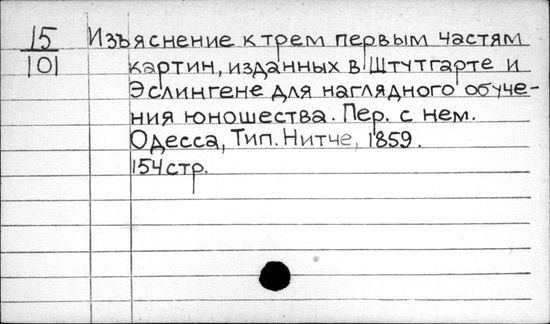 15 Изъяснение к трем первым частям
101 картин, изданных в Штутгарте и
Эслингене для наглядного обуче-
ния юношества. Пер. с нем.
Одесса, Тип. Нитче, 1859.
154 стр.